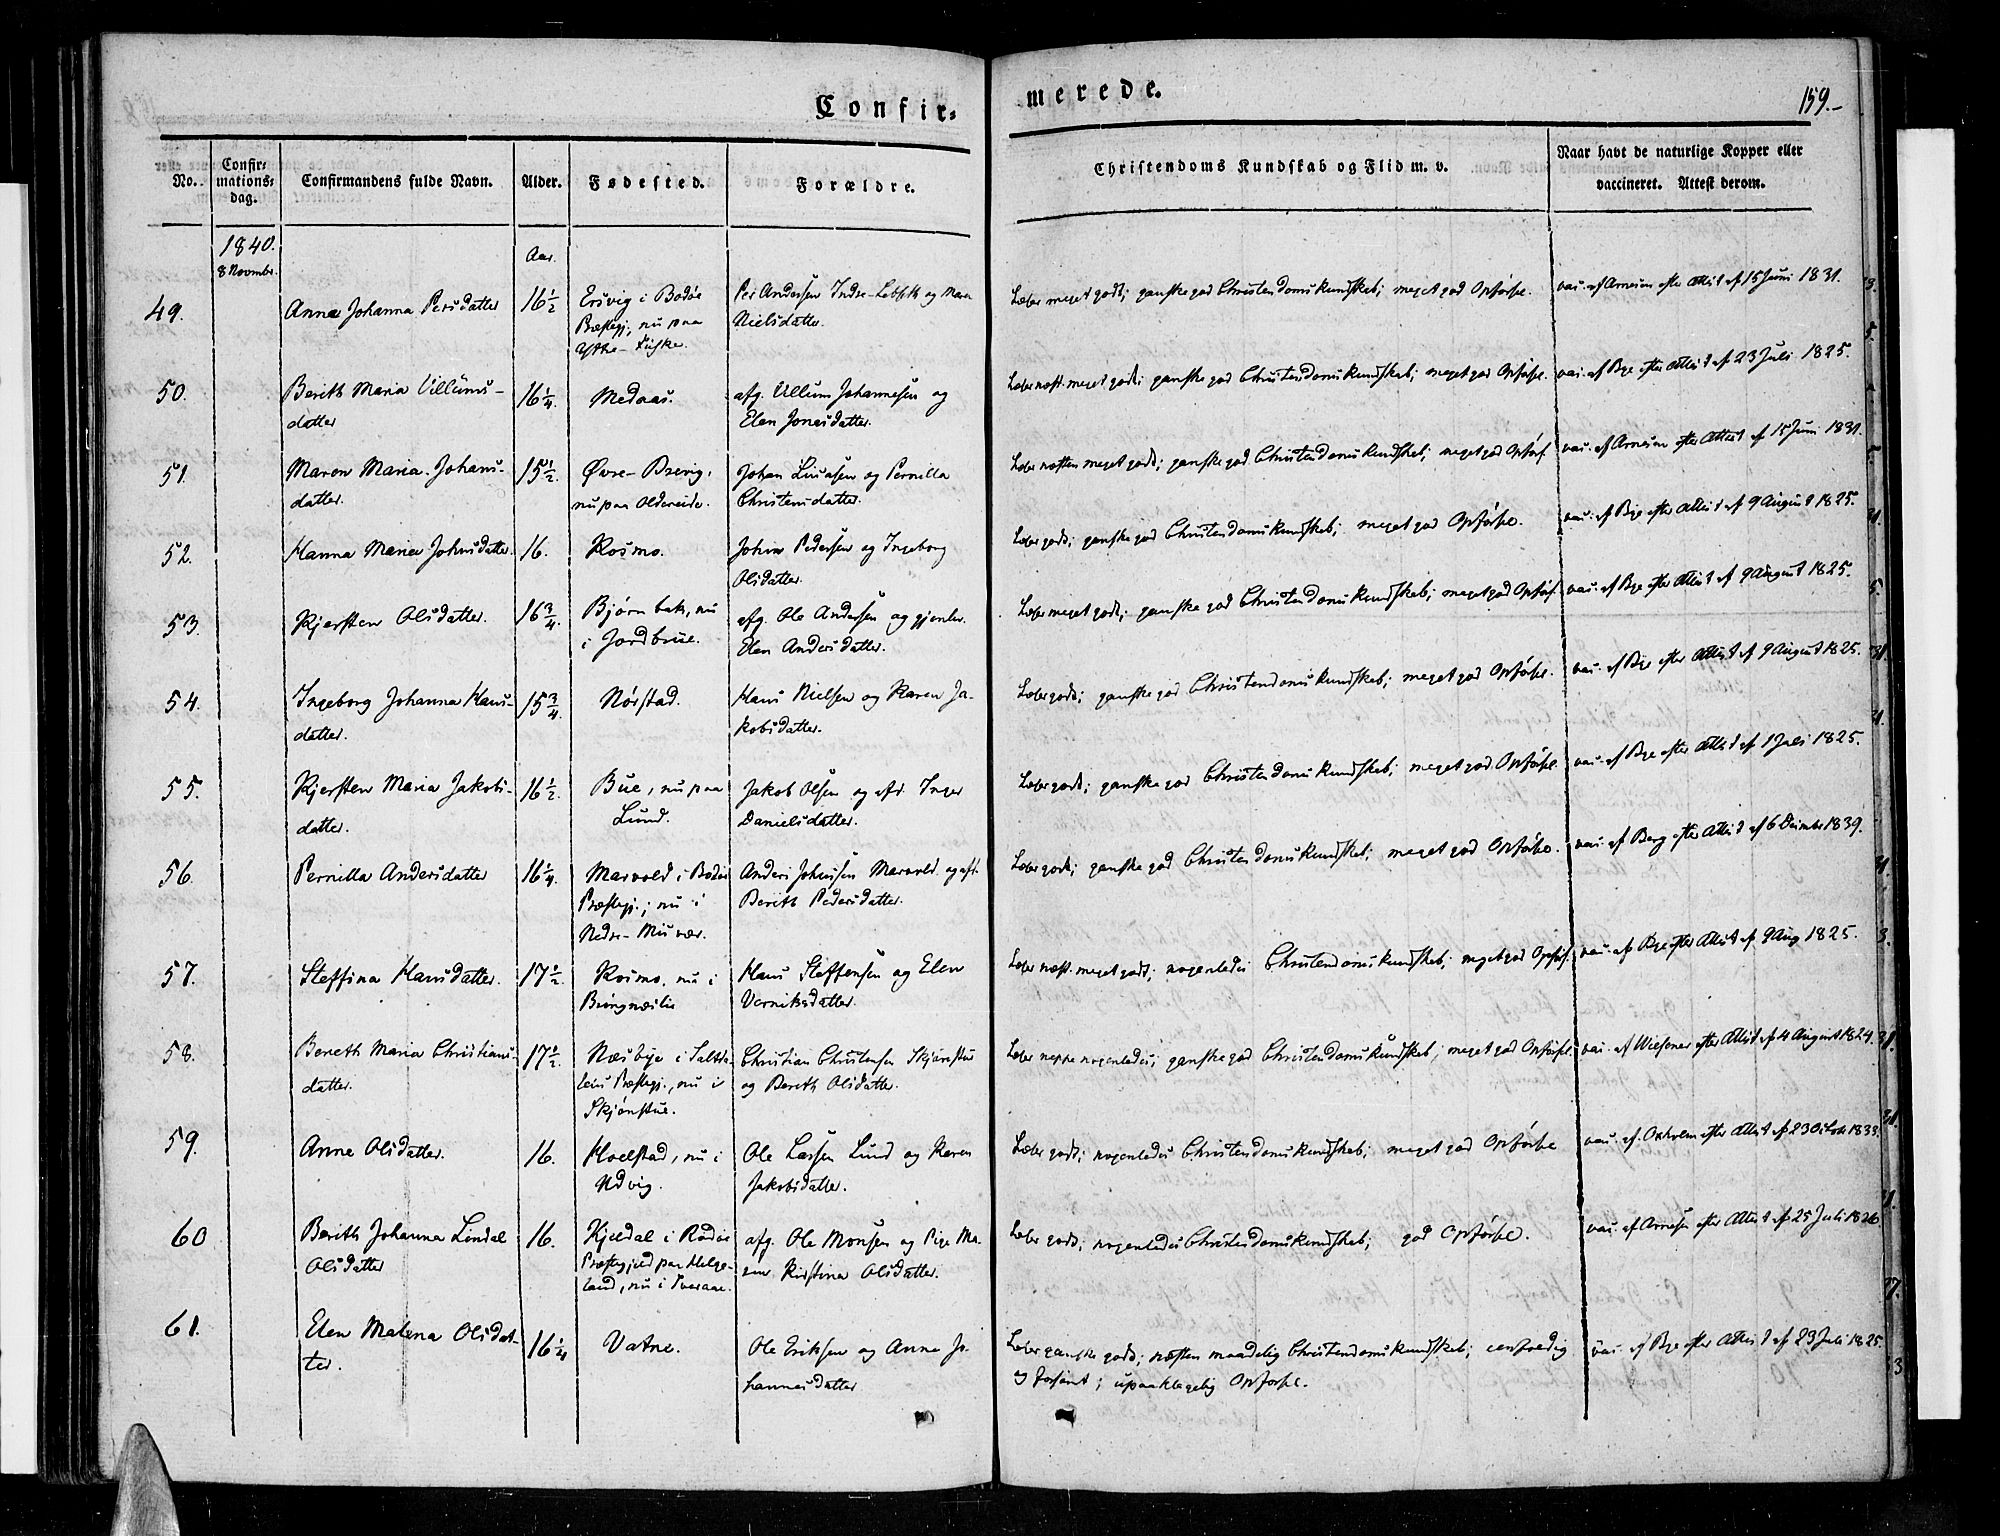 Confir-
merede.
159.-
No.
Confir-
mations-
dag.
Confirmandens fulde Navn.
Alder.
Fødested.
Forældre.
Christendoms Kundskab og Flid m. v.
Naar havt de naturlige Kopper eller
vaccineret. Attest derom.
1840.
8 Novmbr.
Aar.
49.
Anna Johanna Persdatter
16 1/2
Ersvig i Bodøe
Præstegj, nu paa
Ythre-
Per Andersen Indre- og Maren
Nielsdatter.
Læser meget godt; ganske god Christendomskundskab; meget god Opførse.
vac. af Arnesen efter Attest af 15 Juni 1831.
50.
Berith Maria Villums-
datter
16 1/4.
Medaas.
afg. Villum Johannesen og
Elen Jonasdatter.
Læser næst. meget godt; ganske god Christendomskundskab; meget god Opførse.
vac. af Bye efter Attest af 23 Juli 1825.
51.
Maren Maria Johans-
datter.
15 1/2.
Øvre-
nu paa Oldereide.
Johan Lucasen og Pernilla
Christensdatter.
Læser næsten meget godt; ganske god Christendomskundskab; meget god Opførs.
vac. af Arnesen efter Attest af 15 Juni 1831.
52.
Hanna Maria Johnsdatter.
16.
Kosmo.
John Pedersen og Ingeborg
Olsdatter.
Læser godt; ganske god Christendomskundskab; meget god Opførse.
vac. af Bye efter Attest af 9 August 1825.
53.
Kjersten Olsdatter.
16 3/4.
Bjørnbak, nu
i Jordbrue.
afg. Ole Andersen og gjenlev.
Elen Andersdatter.
Læser meget godt; ganske god Christendomskundskab; meget god Opførs.
vac. af Bye efter Attest af 9 August 1825.
54.
Ingeborg Johanna Hans-
datter.
15 3/4.
Nørstad.
Hans Nielsen og Karen Ja-
kobsdatter.
Læser godt; ganske god Christendomskundskab; meget god Opførse.
vac. af Bye efter Attest af 9 August 1825.
55.
Kjersten Maria Jakobs-
datter.
16 1/2.
Bue, nu paa
Lund.
Jakob Olsen og afd. Inger
Danielsdatter.
Læser godt; ganske god Christendomskundskab; meget god Opførse.
vac. af Bye efter Attest af 1 Juli 1825.
56.
Pernilla Andersdatter
16 1/4.
Marvold i Bodøe
Præstegj.; nu i
Nedre-
Anders Johnsen Marvold og afd.
Berith Pedersdatter.
Læser godt; ganske god Christendomskundskab; meget god Opførse.
vac. af Berg efter Attest af 6 Decmber 1839.
57.
Steffina Hansdatter.
17 1/2.
Kosmo, nu i
Hans Steffensen og Elen
Verniksdatter.
Læser næst. meget godt; nogenledes Christendomskundskab; meget god Opførs.
vac. af Bye efter Attest af 9 Aug 1825.
58.
Bereth Maria Christians-
datter.
17 1/2.
Næsbye i Salt-
Præstegj., nu i
Skjønstue.
Christian Christensen Skjønstue
og Berith Olsdatter.
Læser neppe nogenledes; ganske god Christendomskundskab; meget god Opførse.
vac. af Wiesener efter Attest af 4 August 1824.
59.
Anne Olsdatter.
16.
Hoelstad, nu i
Udvig.
Ole Larsen Lund og Karen
Jakobsdatter.
Læser godt; nogenledes Christendomskundskab; meget god Opførse
vac. af Oxholm efter Attest af 23 Octobr 1833.
60
Berith Johanna Lindal
Olsdatter
16.
Kjeldal i Rødøe
Præstegjeld paa Helge-
land, nu i
afg. Ole Monsen og Pige Ma-
ren Kirstina Olsdatter.
Læser godt; nogenledes Christendomskundskab; god Opførse.
vac. af Arnesen efter Attest af 25 Juli 1826
61.
Elen Malena Olsdat-
ter.
16 1/4
Vatne.
Ole Eriksen og Anna Jo-
hannesdatter
Læser ganske godt; næsten maadelig Christendomskundskab; eenfoldig
og forsømt; upaaklagelig Opførse.
vac. af Bye efter Attest af 23 Juli 1825.